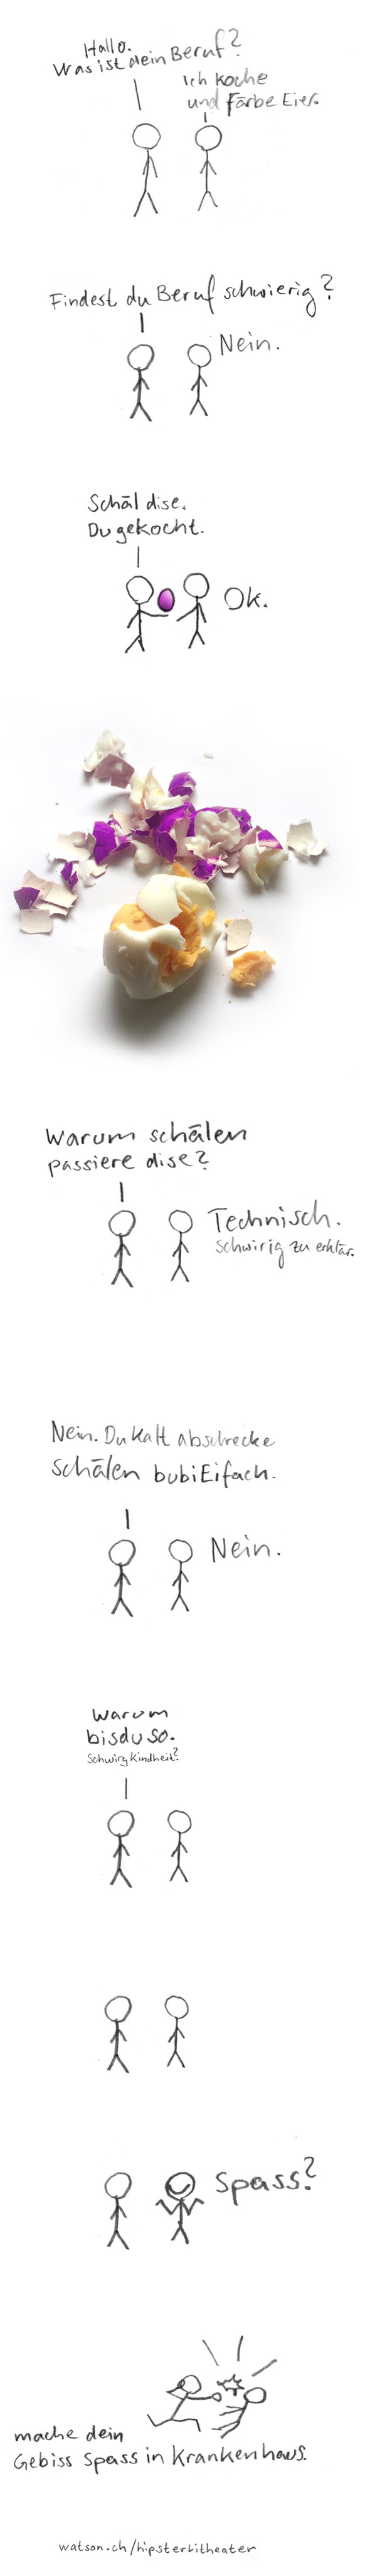 Hallo.
Was ist dein Beruf?
Ich koche
und Färbe Eier.
Findest du Beruf schwierig?
Nein.
Schäl dise.
Du gekocht.
Ok.
Warum schälen
passiere dise?
Technisch.
Schwirig zu erklär.
Nein. Du kalt abschrecke
schälen bubiEifach.
Nein.
Warum
bisduso.
Schwirig Kindheit?
Spass?
mache dein
Gebiss Spass in Krankenhaus.
watson.ch/hipsterlitheater